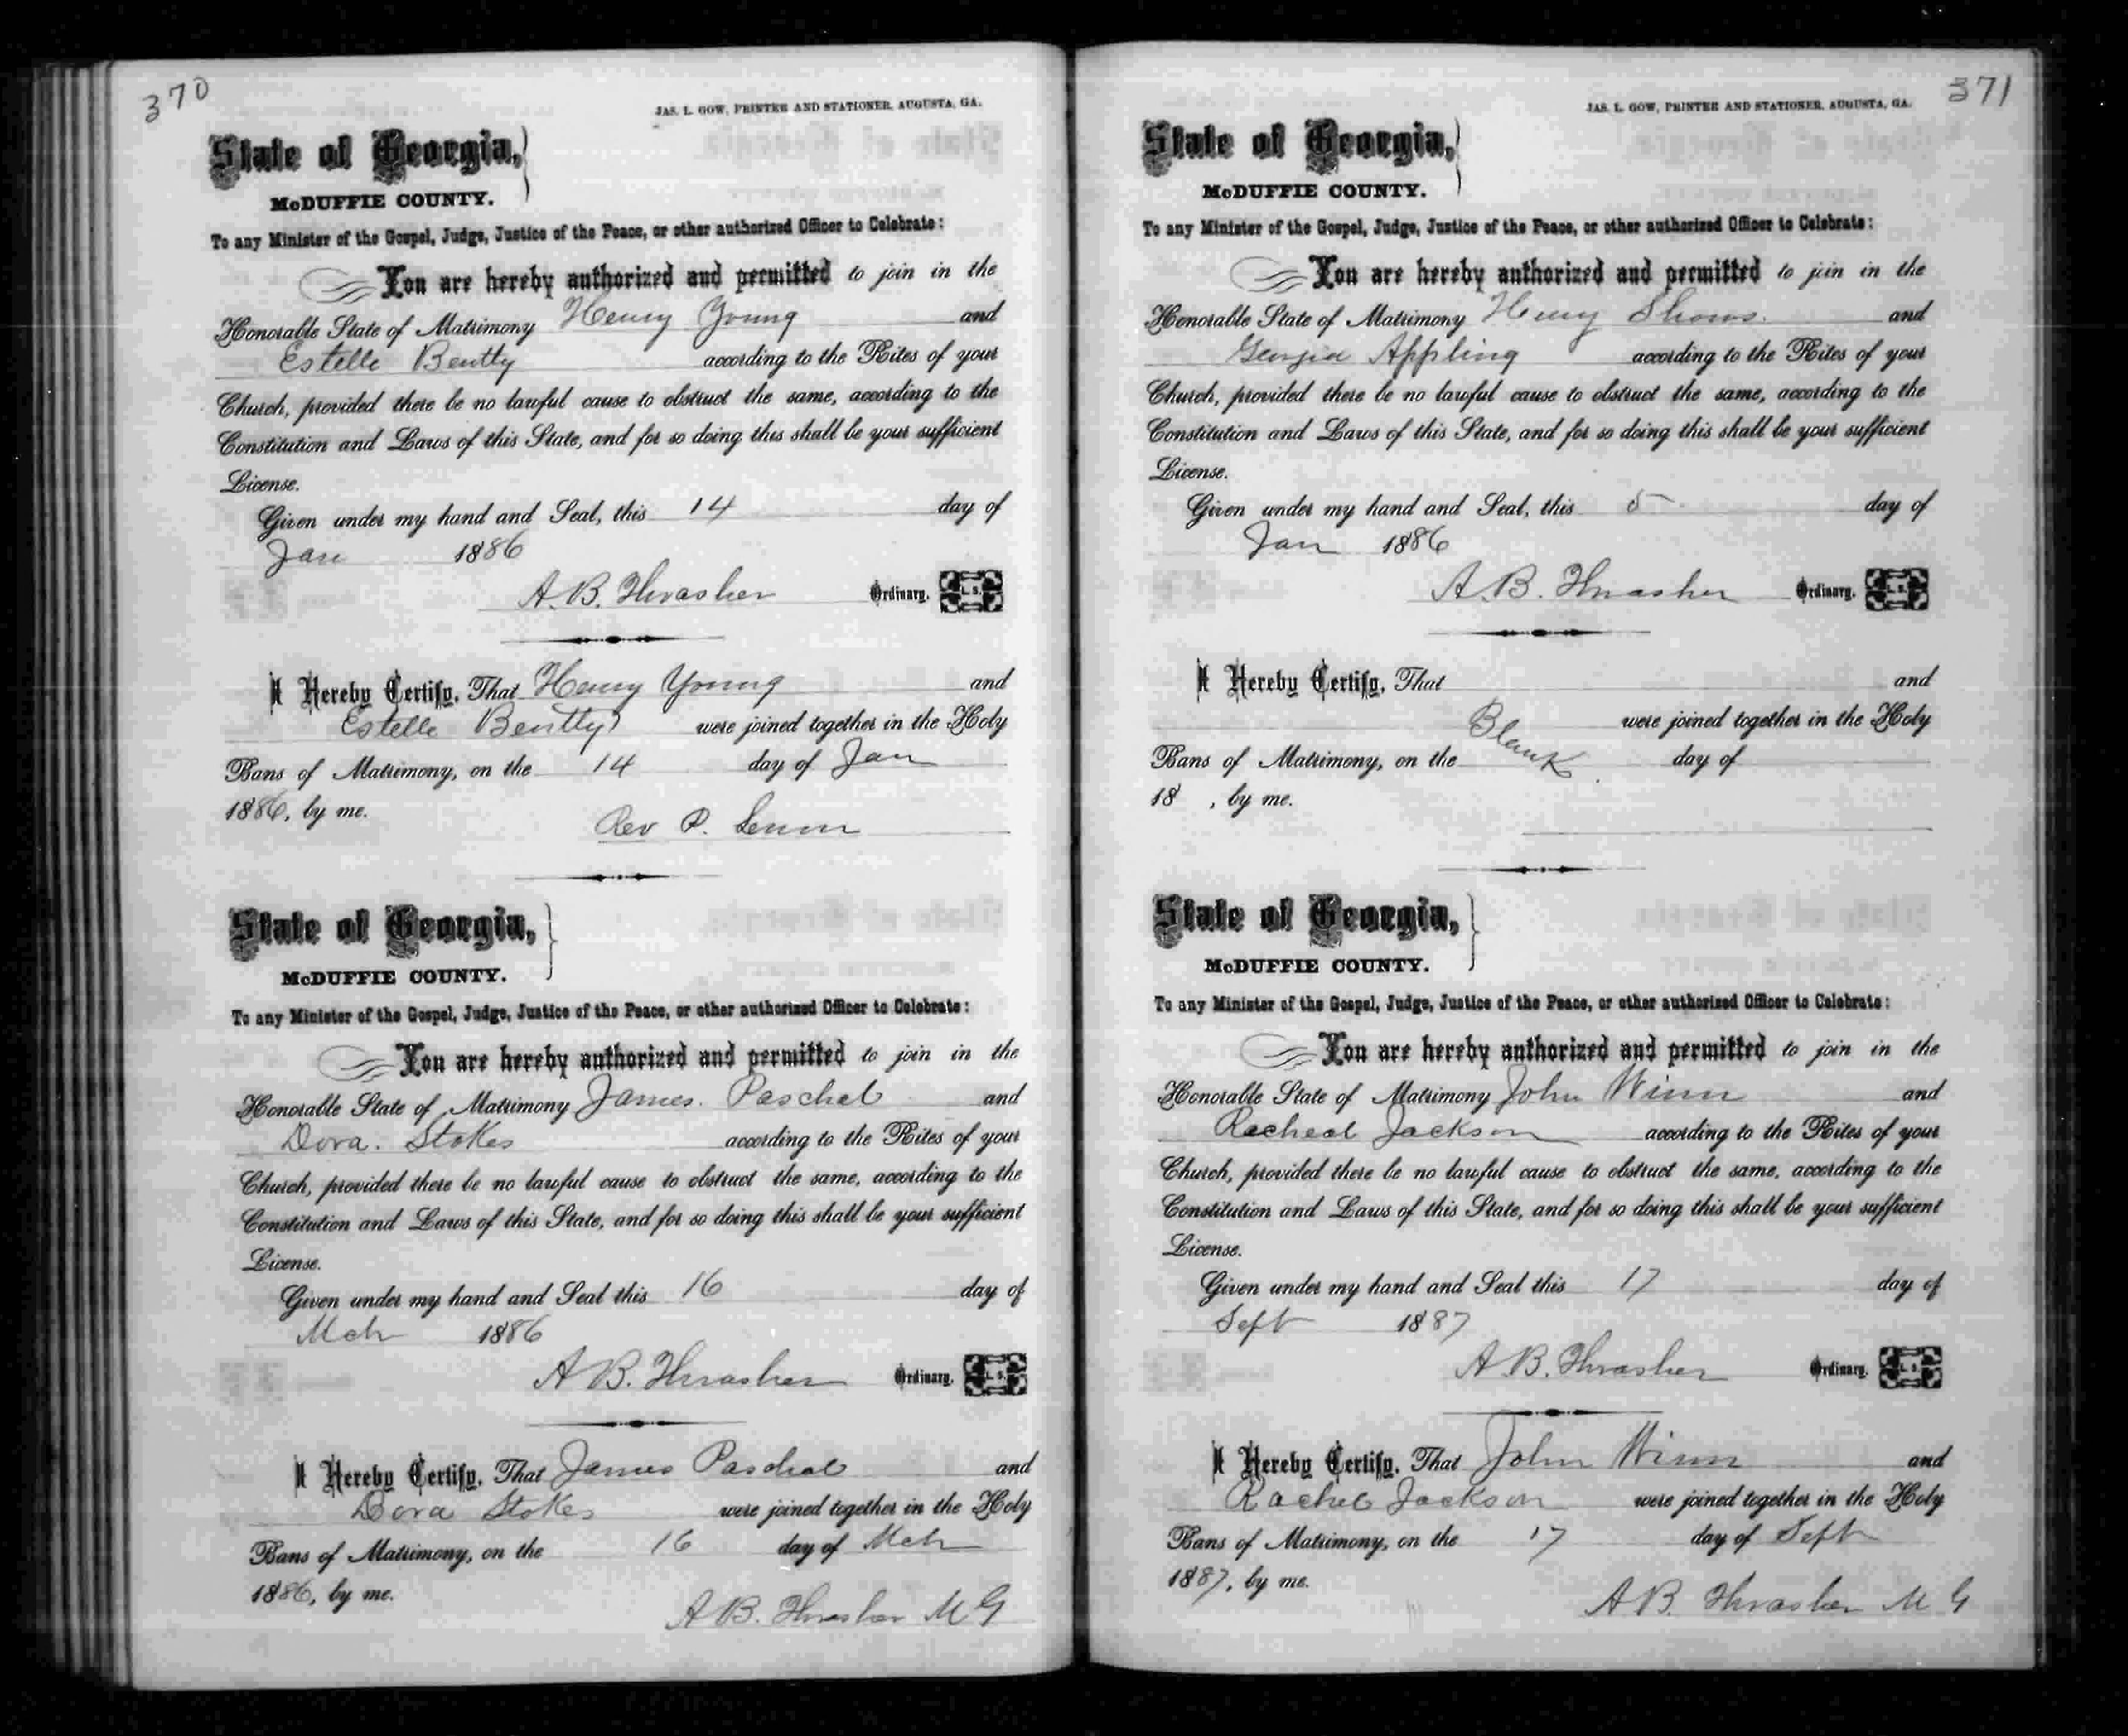 370
JAS. L. GOW, PRINTER AND STATIONER, AUGUSTA, GA.
State of Georgia,
McDUFFIE COUNTY.
To any Minister of the Gospel, Judge, Justice of the Peace, or other authorized Officer to Celebrate:
You are hereby authorized and permitted to join in the
Honorable State of Matrimony Henry Young and
Estelle Bentty according to the Rites of your
Church, provided there be no lawful cause to obstruct the same, according to the
Constitution and Laws of this State, and for so doing this shall be your sufficient
License.
Given under my hand and Seal, this 14 day of
Jan 1886
A. B. Thrasher Ordinary. L. S.
I Hereby Certify, That Henry Young and
Estelle Bentty were joined together in the Holy
Bans of Matrimony, on the 14 day of Jan
1886, by me.
Rev P.
State of Georgia,
McDUFFIE COUNTY.
To any Minister of the Gospel, Judge, Justice of the Peace, or other authorized Officer to Celebrate:
You are hereby authorized and permitted to join in the
Honorable State of Matrimony James. Paschal and
Dora. Stokes according to the Rites of your
Church, provided there be no lawful cause to obstruct the same, according to the
Constitution and Laws of this State, and for so doing this shall be your sufficient
License.
Given under my hand and Seal this 16 day of
Mch 1886
A B. Thrasher Ordinary. L. S.
I Hereby Certify, That James Paschal and
Dora Stokes were joined together in the Holy
Bans of Matrimony, on the 16 day of Mch
1886, by me.
A B. Thrasher M G
371
JAS. L. GOW, PRINTER AND STATIONER, AUGUSTA, GA.
State of Georgia,
McDUFFIE COUNTY.
To any Minister of the Gospel, Judge, Justice of the Peace, or other authorized Officer to Celebrate:
You are hereby authorized and permitted to join in the
Honorable State of Matrimony Henry Shows. and
Georgia Appling according to the Rites of your
Church, provided there be no lawful cause to obstruct the same, according to the
Constitution and Laws of this State, and for so doing this shall be your sufficient
License.
Given under my hand and Seal, this 5 day of
Jan 1886
A. B. Thrasher Ordinary. L. S.
I Hereby Certify, That and
Blank were joined together in the Holy
Bans of Matrimony, on the day of
18 , by me.
State of Georgia,
McDUFFIE COUNTY.
To any Minister of the Gospel, Judge, Justice of the Peace, or other authorized Officer to Celebrate:
You are hereby authorized and permitted to join in the
Honorable State of Matrimony John Winn and
Racheal Jackson according to the Rites of your
Church, provided there be no lawful cause to obstruct the same, according to the
Constitution and Laws of this State, and for so doing this shall be your sufficient
License.
Given under my hand and Seal this 17 day of
Sept 1887
A B. Thrasher Ordinary. L. S.
I Hereby Certify, That John Winn and
Rachel Jackson were joined together in the Holy
Bans of Matrimony, on the 17 day of Sept
1887, by me.
A B. Thrasher M G